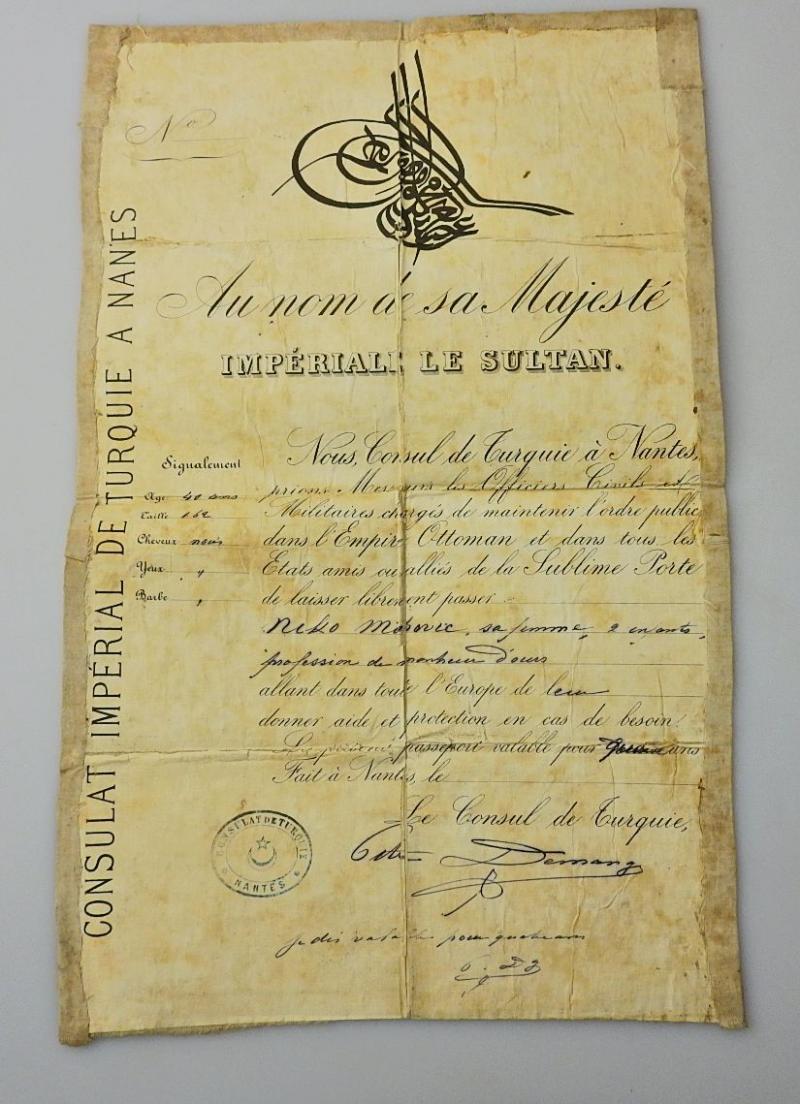 CONSULAT IMPÉRIAL DE TURQUIE A NANTES
No
Au nom de sa Majesté
IMPÉRIALE LE SULTAN.
Signalement
Age 40 ans
Taille 162
Cheveux noirs
Yeux "
Barbe "
Nous, Consul de Turquie à Nantes,
prions Messieurs les Officiers Civils et
Militaires chargés de maintenir l'ordre public
dans l'Empire Ottoman et dans tous les
Etats amis ou alliés de la Sublime Porte
de laisser librement passer
sa femme, 2 enfants,
profession de d'ours
allant dans toute l'Europe de leur
donner aide et protection en cas de besoin.
Le présent passeport valable pour ans
Fait à Nantes, le
Le Consul de Turquie,
CONSULAT DE TURQUIE
NANTES
je dis valable pour quatre ans